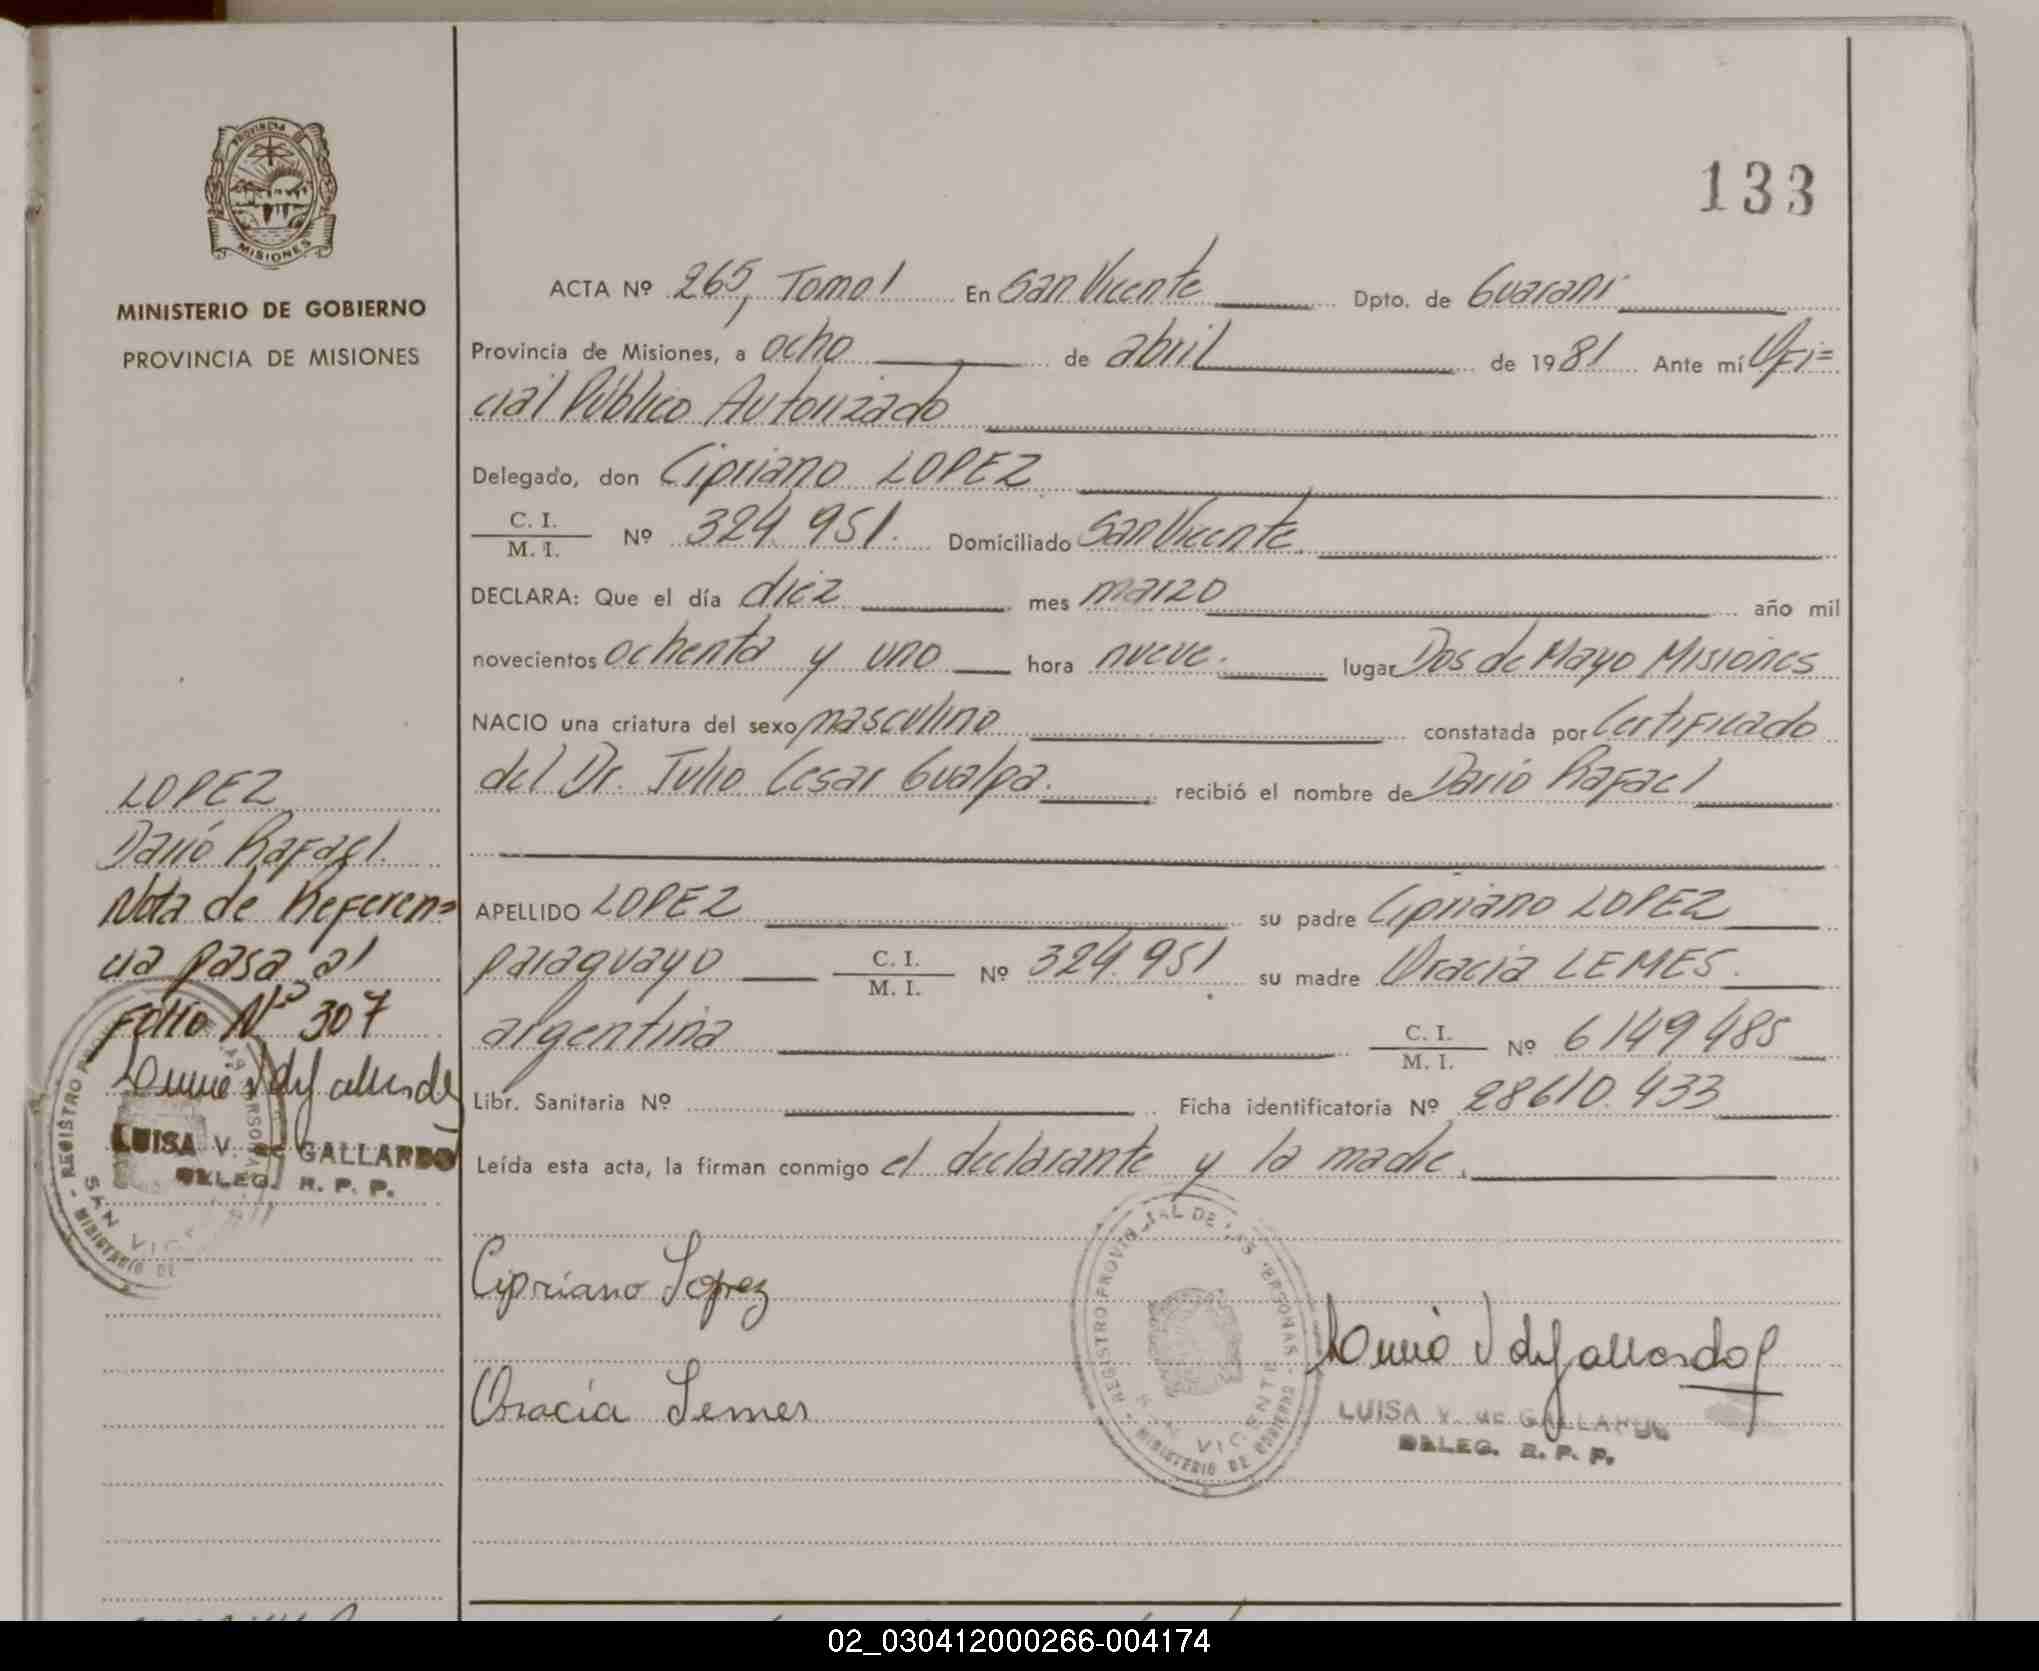 133
PROVINCIA D
MISIONES
MINISTERIO DE GOBIERNO
PROVINCIA DE MISIONES
ACTA Nº 265, Tomo I En San Vicente Dpto. de Guaraní
Provincia de Misiones, a ocho de abril de 1981 Ante mí Ofi=
cial Público Autorizado
Delegado, don Cipriano LOPEZ
C. I.
M. I. Nº 324.951. Domiciliado San Vicente.
DECLARA: Que el día diez mes marzo año mil
novecientos ochenta y uno hora nueve. lugar Dos de Mayo Misiones
NACIO una criatura del sexo masculino constatada por Certificado
del Dr. Julio Cesar Gualpa. recibió el nombre de Darío Rafael
APELLIDO LOPEZ su padre Cipriano LOPEZ
paraguayo C. I.
M. I. Nº 324.951 su madre Oracia LEMES.
argentina C. I.
M. I. Nº 6149485
Libr. Sanitaria Nº Ficha identificatoria Nº 28610.433
Leída esta acta, la firman conmigo el declarante y la madre.
Cipriano Lopez
Oracia Lemes
REGISTRO PROVINCIAL DE LAS PERSONAS - MINISTERIO DE GOBIERNO -
SAN VICENTE
LUISA V. de GALLARDO
DELEG. R. P. P.
LOPEZ
Darió Rafael.
Nota de Referen=
cia pasa al
Folio Nº 307
LUISA V. de GALLARDO
DELEG. R. P. P.
- REGISTRO PRO
PERSONAS
SAN VIC
MINISTERIO DE
02_030412000266-004174